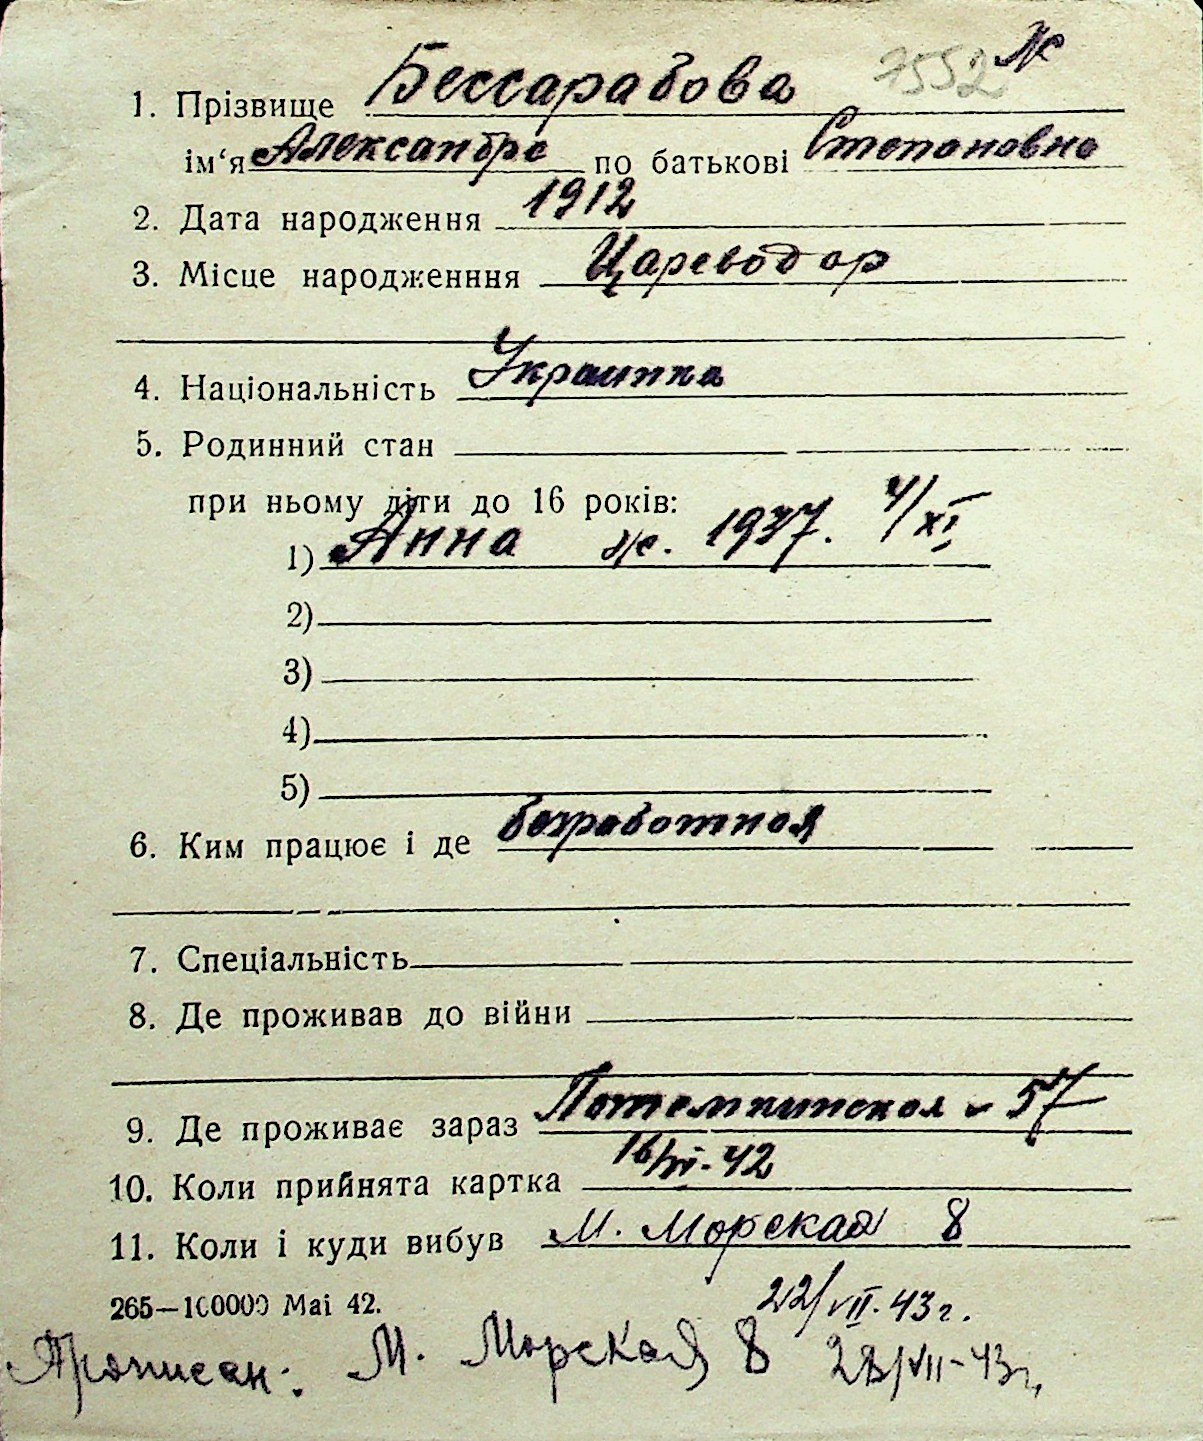 7552 Ж
1. Прізвище Бессарабова
ім‘я Александра по батькові Степановна
2. Дата народження 1912
3. Місце народженння Цареводар
4. Національність Украинка
5. Родинний стан
при ньому діти до 16 років:
1) Анна ж. 1937. 4/XI
2)
3)
4)
5)
6. Ким працює і де безработная
7. Спеціальність
8. Де проживав до війни
9. Де проживає зараз Потемкинская - 57
10. Коли прийнята картка 42
11. Коли і куди вибув М. Морская 8
265—100000 Mai 42. 22/VII. 43 г.
Прописан: М. Морская 8 28/VII-43 г.